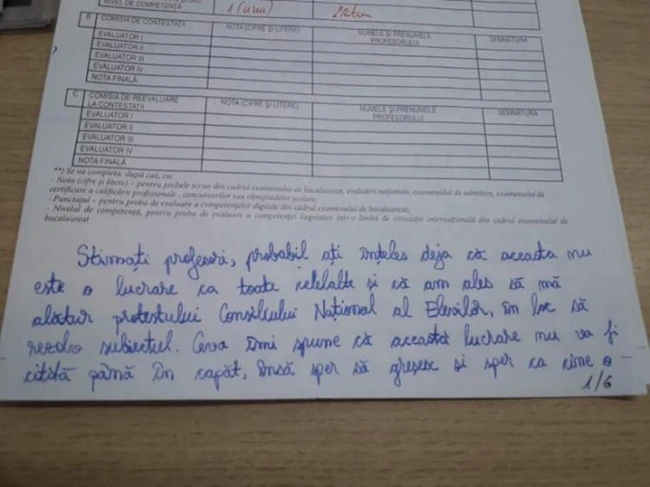 NIVEL DE COMPETENȚĂ 1 (unu)
B COMISIA DE CONTESTAȚII NOTA (CIFRE ȘI LITERE) NUMELE ȘI PRENUMELE PROFESORULUI SEMNĂTURA
EVALUATOR I
EVALUATOR II
EVALUATOR III
EVALUATOR IV
NOTA FINALĂ
C COMISIA DE REEVALUARE LA CONTESTAȚII NOTA (CIFRE ȘI LITERE) NUMELE ȘI PRENUMELE PROFESORULUI SEMNĂTURA
EVALUATOR I
EVALUATOR II
EVALUATOR III
EVALUATOR IV
NOTA FINALĂ
**) Se va completa, după caz, cu:
- Nota (cifre și litere) – pentru probele scrise din cadrul examenului de bacalaureat, evaluării naționale, examenului de admitere, examenului de
certificare a calificării profesionale, concursurilor sau olimpiadelor școlare;
- Punctajul – pentru proba de evaluare a competențelor digitale din cadrul examenului de bacalaureat;
- Nivelul de competență, pentru proba de evaluare a competenței lingvistice într-o limbă de circulație internațională din cadrul examenului de
bacalaureat
Stimați profesori, probabil ați înțeles deja că aceasta nu
este o lucrare ca toate celelalte și că am ales să mă
alătur protestului Consiliului Național al Elevilor, în loc să
rezolv subiectul. Ceva îmi spune că această lucrare nu va fi
citită până în capăt, însă sper să greșesc și sper ca cine o
1/6